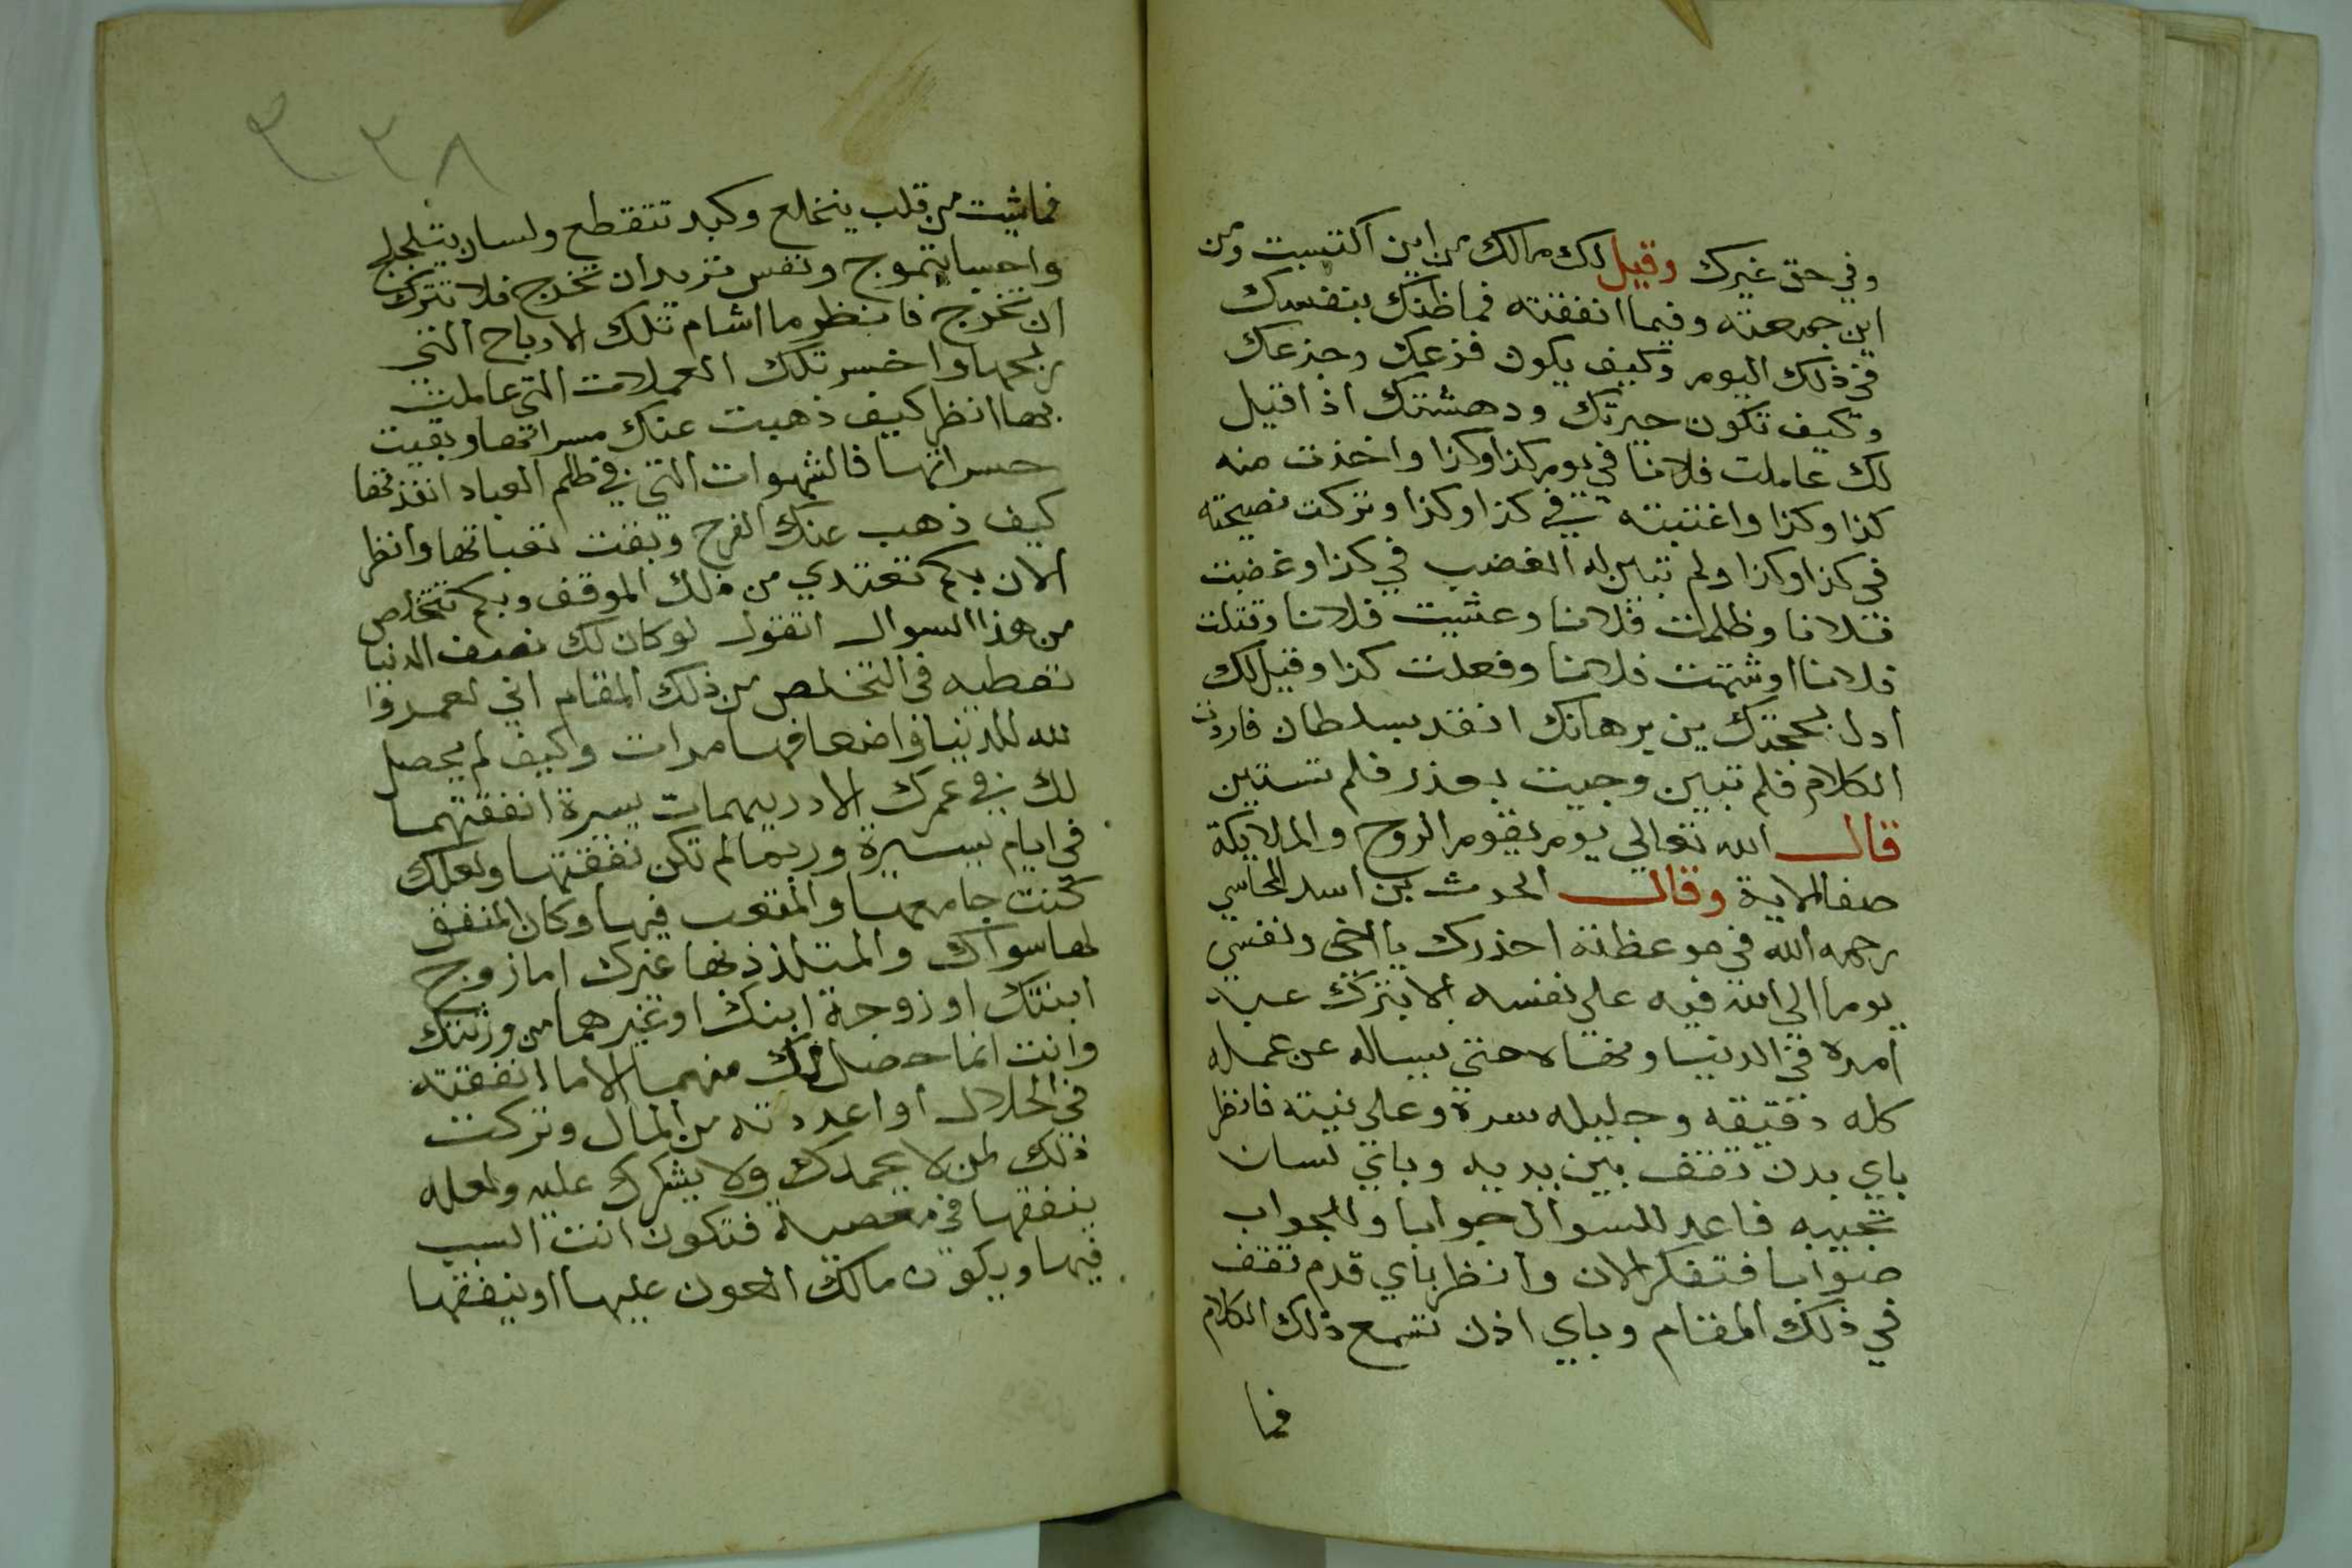 وفي حق غيرك وقيل لك مالك من اين اكتسبت ومن
اين جمعته وفيما انفقته فما ظنك بنفسك
في ذلك اليوم وكيف يكون فزعك وجزعك
وكيف تكون حيرتك ودهشتك اذا قيل
لك عاملت فلانا في يوم كذا وكذا واخذت منه
كذا وكذا واغتبته في كذا وكذا وتركت نصيحته
في كذا وكذا ولم تبين له الغضب في كذا وغضبت
فلانا وظلمت فلانا وعشيت فلانا وقتلت
فلانا اوشتمت فلانا وفعلت كذا وقيل لك
ادل بحجتك بين برهانك انفد بسلطان فاردت
الكلام فلم تبين وجيت بعذر فلم تستبين
قال الله تعالي يوم يقوم الروح والملايكة
صفا الاية وقال الحرث بن اسد المحاسبي
رحمه الله في موعظته احذرك يا اخي ونفسي
يوما الي الله فيه علي نفسه الا يترك عبد
امره في الدنيا ونهاه حتي يساله عن عمله
كله دقيقه وجليله سره وعلانيته فانظر
باي بدن تقف بين يديه وباي لسان
تجيبه فاعد للسوال جوابا وللجواب
صوابا فتفكر الان وانظر باي قدم تقف
في ذلك المقام وباي اذن تسمع ذلك الكلام
فما
٢٢٨
فما شيت من قلب ينخلع وكبد تتقطع ولسان يتلجلج
واحشا تتموج ونفس تريد ان تخرج فلا تترك
ان تخرج فانظر ما اشام تلك الارباح التي
ربحها واخسر تلك العملات التي عاملت
بها انظر كيف ذهبت عنك مسراتها وبقيت
حسراتها فالشهوات التي في ظلم العباد انفذتها
كيف ذهب عنك الفرح وبقت تعباتها وانظر
الان بكم تفتدي من ذلك الموقف وبكم تتخلص
من هذا السوال اتقول لو كان لك نصف الدنيا
تعطيه في التخلص من ذلك المقام اني لعمر
لله للدنيا واضعافها مرات وكيف لم يحصل
لك في عمرك الا دريهمات يسيرة انفقتها
في ايام يسيرة وربما لم تكن نفقتها ولعلك
كنت جامعها والمتعب فيها وكان المنفق
لها سواك والمتلذذ بها غيرك اما زوج
ابنتك او زوجة ابنك او غيرهما من ورثتك
وانت انما حصل لك منها الا ما انفقته
في الحلال او اعددته من المال وتركت
ذلك لمن لا يحمدك ولا يشكرك عليه ولعله
ينفقها في معصية فتكون انت السبب
فيها ويكون مالك العون عليها او ينفقها